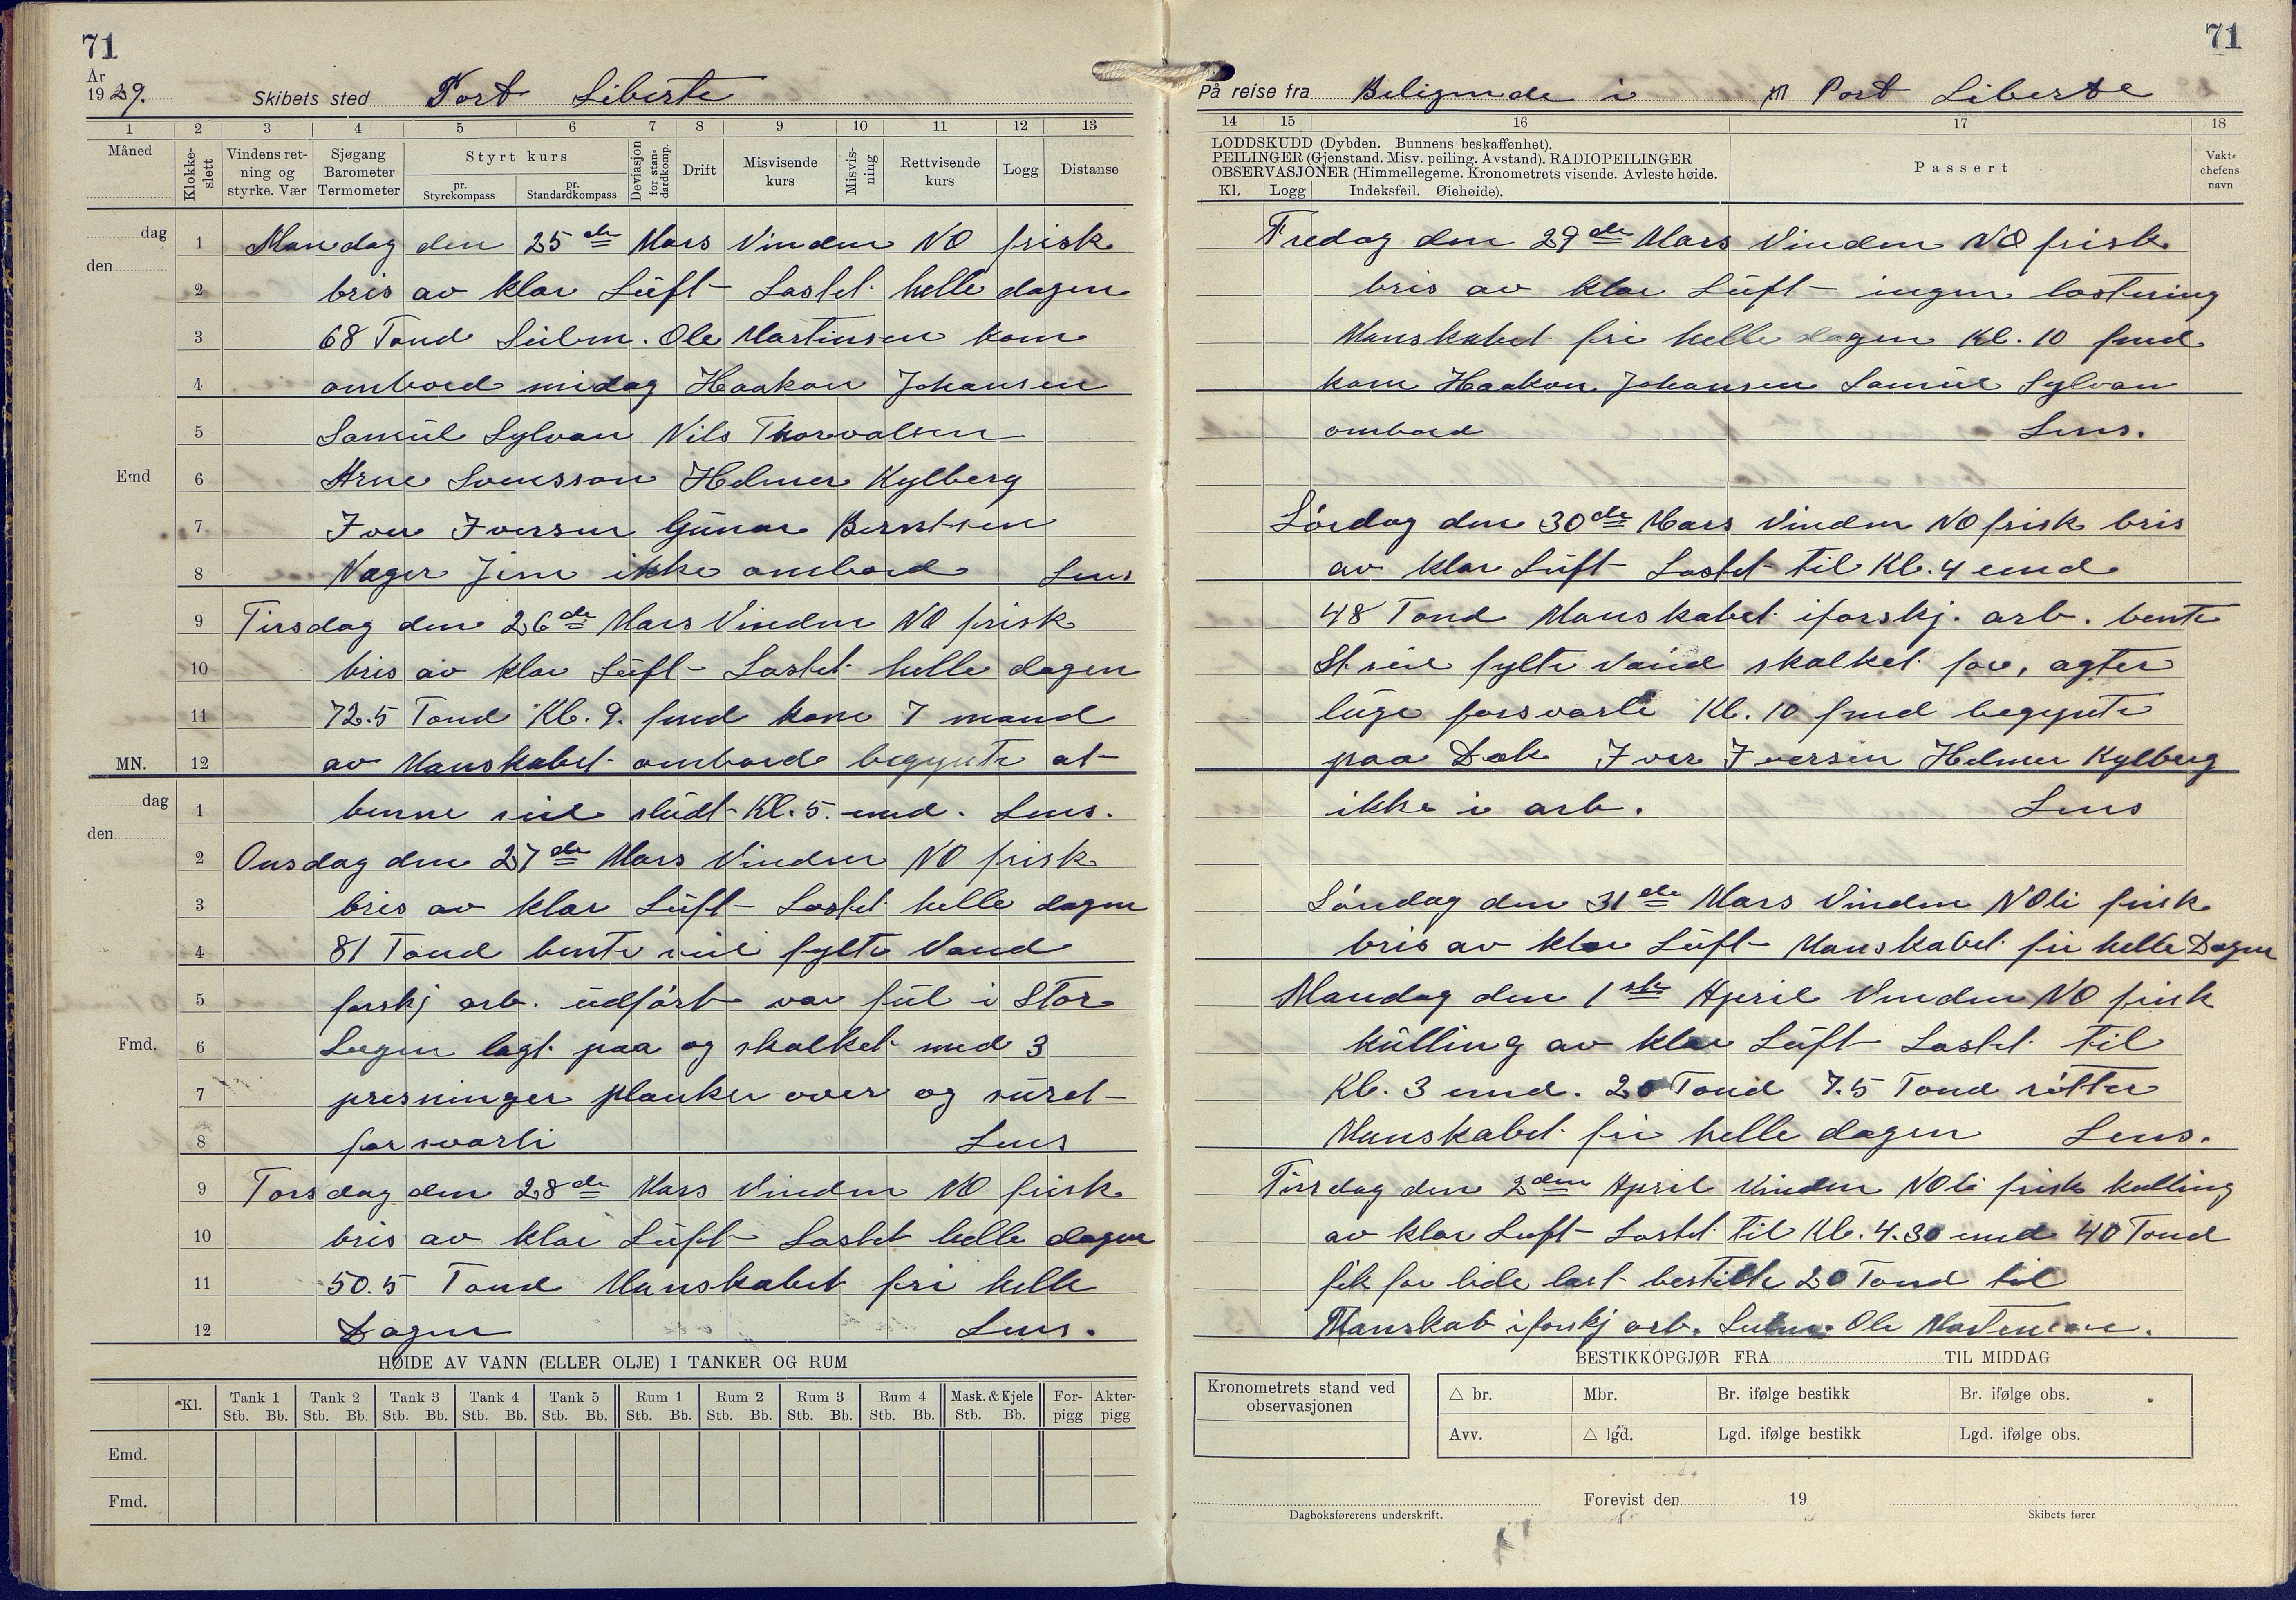 71
År
1929. Skibets sted Port Liberte
1 2 3 4 5 6 7 8 9 10 11 12 13
Måned Klokke-slett Vindens ret-ning og styrke. Vær Sjøgang Barometer Termometer Styrt kurs pr. Styrekompass pr. Standardkompass Deviasjon for stan-dardkomp. Drift Misvisende kurs Misvis-ning Rettvisende kurs Logg Distanse
dag 1 Mandag den 25de Mars Vinden NO frisk
den
2 bris av klar Luft Lastet helle dagen
3 68 Tond Ole Martinsen kom
4 ombord midag Haakon Johansen
5 Samuel Sylvan Nils Thorvalsen
Emd 6 Arne Svensson Helmer Kylberg
7 Iver Iversen Gunar Berntsen
8 ikke ombord Lens
9 Tirsdag den 26de Mars Vinden NO frisk
10 bris av klar Luft Lastet helle dagen
11 72.5 Tond Kl. 9. fmd kom 7 mand
MN. 12 av Manskabet ombord begynte at
dag 1 benne seil sludt Kl. 5. emd. Lens.
den
2 Onsdag den 27de Mars Vinden NO frisk
3 bris av klar Luft Lastet helle dagen
4 81 Tond bente seil fylte Vand
5 forskj arb. udført var ful i Stor
Fmd. 6 Lugen lagt paa og skalket med 3
7 presninger planker over og suret
8 forsvarli Lens
9 Torsdag den 28de Mars Vinden NO frisk
10 bris av klar Luft Lastet helle dagen
11 50.5 Tond Manskabet fri helle
12 Dagen Lens.
HØIDE AV VANN (ELLER OLJE) I TANKER OG RUM
Kl. Tank 1 Tank 2 Tank 3 Tank 4 Tank 5 Rum 1 Rum 2 Rum 3 Rum 4 Mask. & Kjele For-pigg Akter-pigg
Stb. Bb. Stb. Bb. Stb. Bb. Stb. Bb. Stb. Bb. Stb. Bb. Stb. Bb. Stb. Bb. Stb. Bb. Stb. Bb.
Emd.
Fmd.
71
På reise fra Beligende i til Port Liberte
14 15 16 17 18
LODDSKUDD (Dybden. Bunnens beskaffenhet).
PEILINGER (Gjenstand. Misv. peiling. Avstand). RADIOPEILINGER
OBSERVASJONER (Himmellegeme. Kronometrets visende. Avleste høide.
Kl. Logg Indeksfeil. Øiehøide).
Passert
Vakt-chefens navn
Fredag den 29de Mars Vinden NO frisk
bris av klar Luft ingen lastning
Manskabet fri helle dagen Kl. 10 fmd
kom Haakon Johansen Samuel Sylvan
ombord Lens.
Lördag den 30de Mars Vinden NO frisk bris
av klar Luft Lastet til Kl. 4 emd
48 Tond Manskabet iforskj. arb. bente
St seil fylte Vand skalket for, agter
luge forsvarli Kl. 10 fmd begynte
paa Dæk Iver Iversen Helmer Kylberg
ikke i arb. Lens
Söndag den 31de Mars Vinden NOli frisk
bris av klar Luft Manskabet fri helle Dagen
Mandag den 1ste April Vinden NO frisk
kulling av klar Luft Lastet til
Kl. 3 emd. 20 Tond 7.5 Tond rötter
Manskabet fri helle dagen Lens.
Tirsdag den 2den April Vinden NOli frisk kulling
av klar Luft Lastet til Kl. 4.30 emd 40 Tond
fik for lide last bestilte 20 Tond til
Manskab iforskj arb. Ole Martensen.
BESTIKKOPGJØR FRA TIL MIDDAG
Kronometrets stand ved observasjonen
△ br. Mbr. Br. ifølge bestikk Br. ifølge obs.
Avv. △ lgd. Lgd. ifølge bestikk Lgd. ifølge obs.
Forevist den 19
Dagboksførerens underskrift. Skibets fører